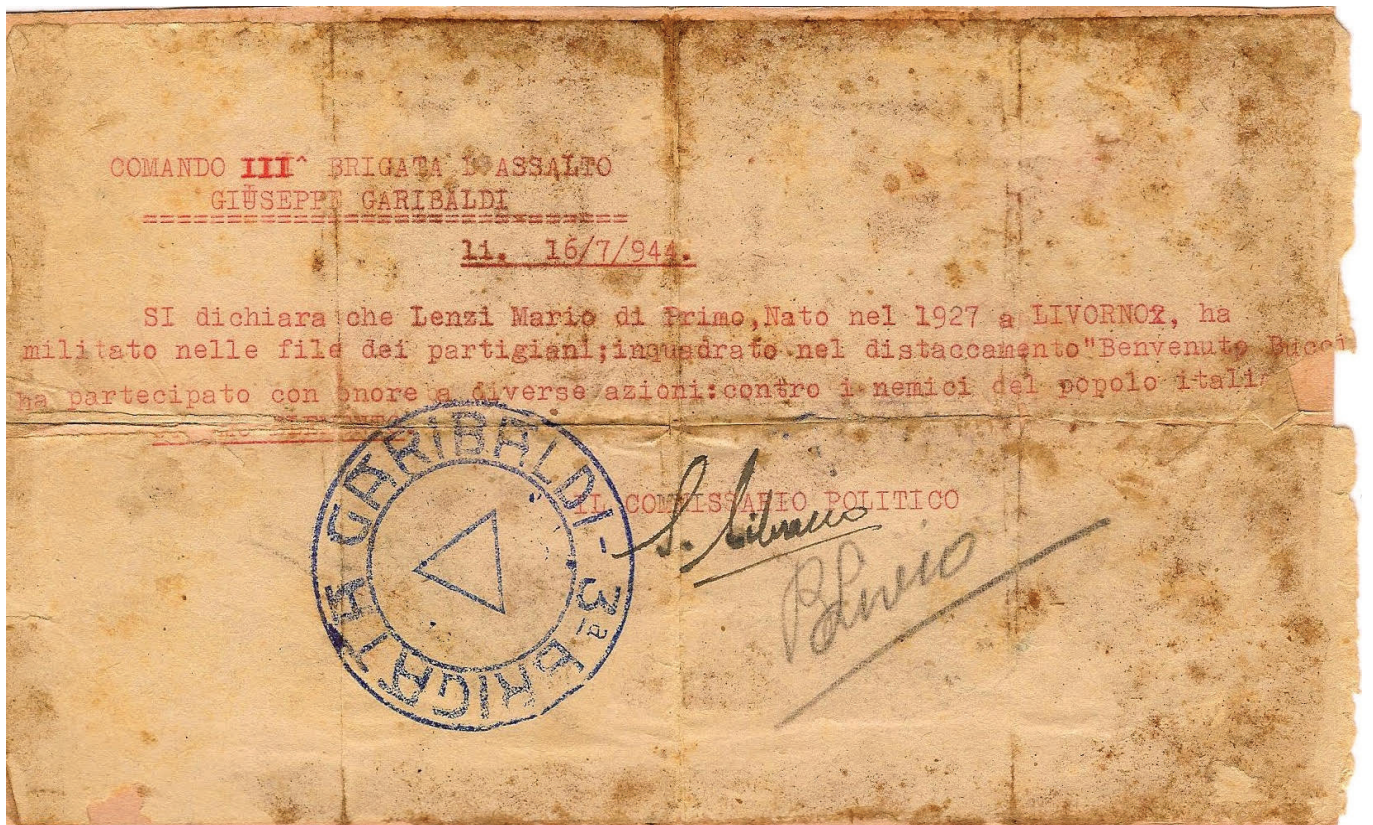 COMANDO III^ BRIGATA D'ASSALTO
GIUSEPPE GARIBALDI
==============================
li. 16/7/944.
SI dichiara che Lenzi Mario di Primo,Nato nel 1927 a LIVORNO, ha
militato nelle file dei partigiani;inquadrato nel distaccamento"Benvenuto Bucci
ha partecipato con onore a diverse azioni:contro i nemici del popolo itali
IL COMMISSARIO POLITICO
GARIBALDI - 3ª BRIGATA